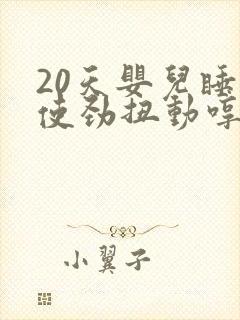 20天嬰兒睡
使劲扭動哼
小翼子